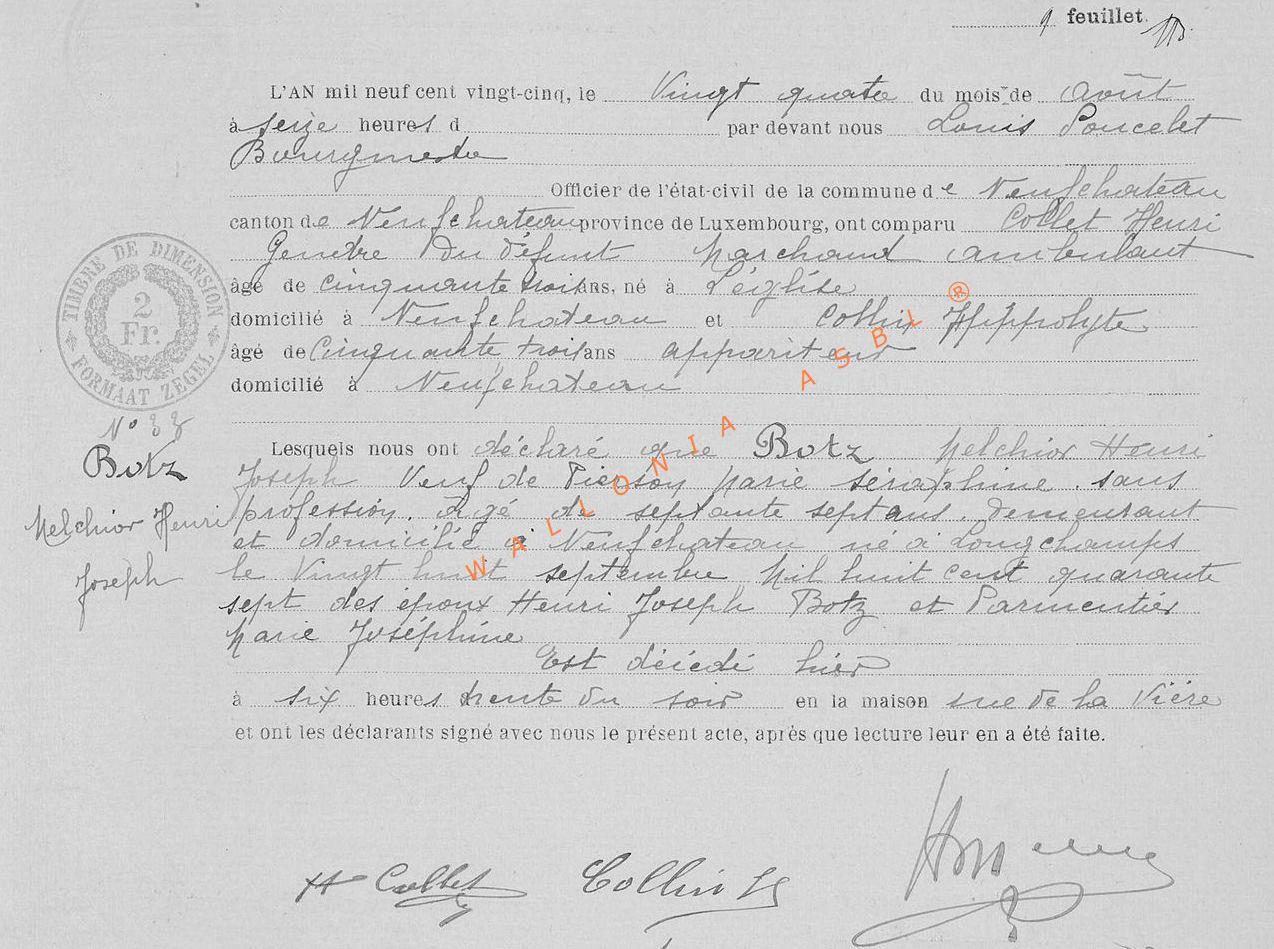 9 feuillet.
L'AN mil neuf cent vingt-cinq, le Vingt quatre du mois de août
à seize heures d par devant nous Louis Poncelet
Bourgmestre
Officier de l'état-civil de la commune de Neufchateau
canton de Neufchateau province de Luxembourg, ont comparu Collet Henri
Gendre du défunt Marchand ambulant
âgé de cinquante trois ans, né à Léglise
domicilié à Neufchateau et Collin Hippolyte
âgé de Cinquante trois ans appariteur
domicilié à Neufchateau
TIMBRE DE DIMENSION
2
Fr.
FORMAAT ZEGEL
N° 33
Botz
Melchior Henri
Joseph
Lesquels nous ont déclaré que Botz Melchior Henri
Joseph Veuf de Pierson Marie Séraphine. sans
profession. Agé de septante sept ans. demeurant
et domicilié à Neufchateau né à Longchamps
le Vingt huit septembre Mil huit cent quarante
sept des époux Henri Joseph Botz et Parmentier
Marie Joséphine
Est décédé hier
à six heures trente du soir en la maison rue de la Vière
et ont les déclarants signé avec nous le présent acte, après que lecture leur en a été faite.
H Collet Collin H
WALLONIA ASBL ®